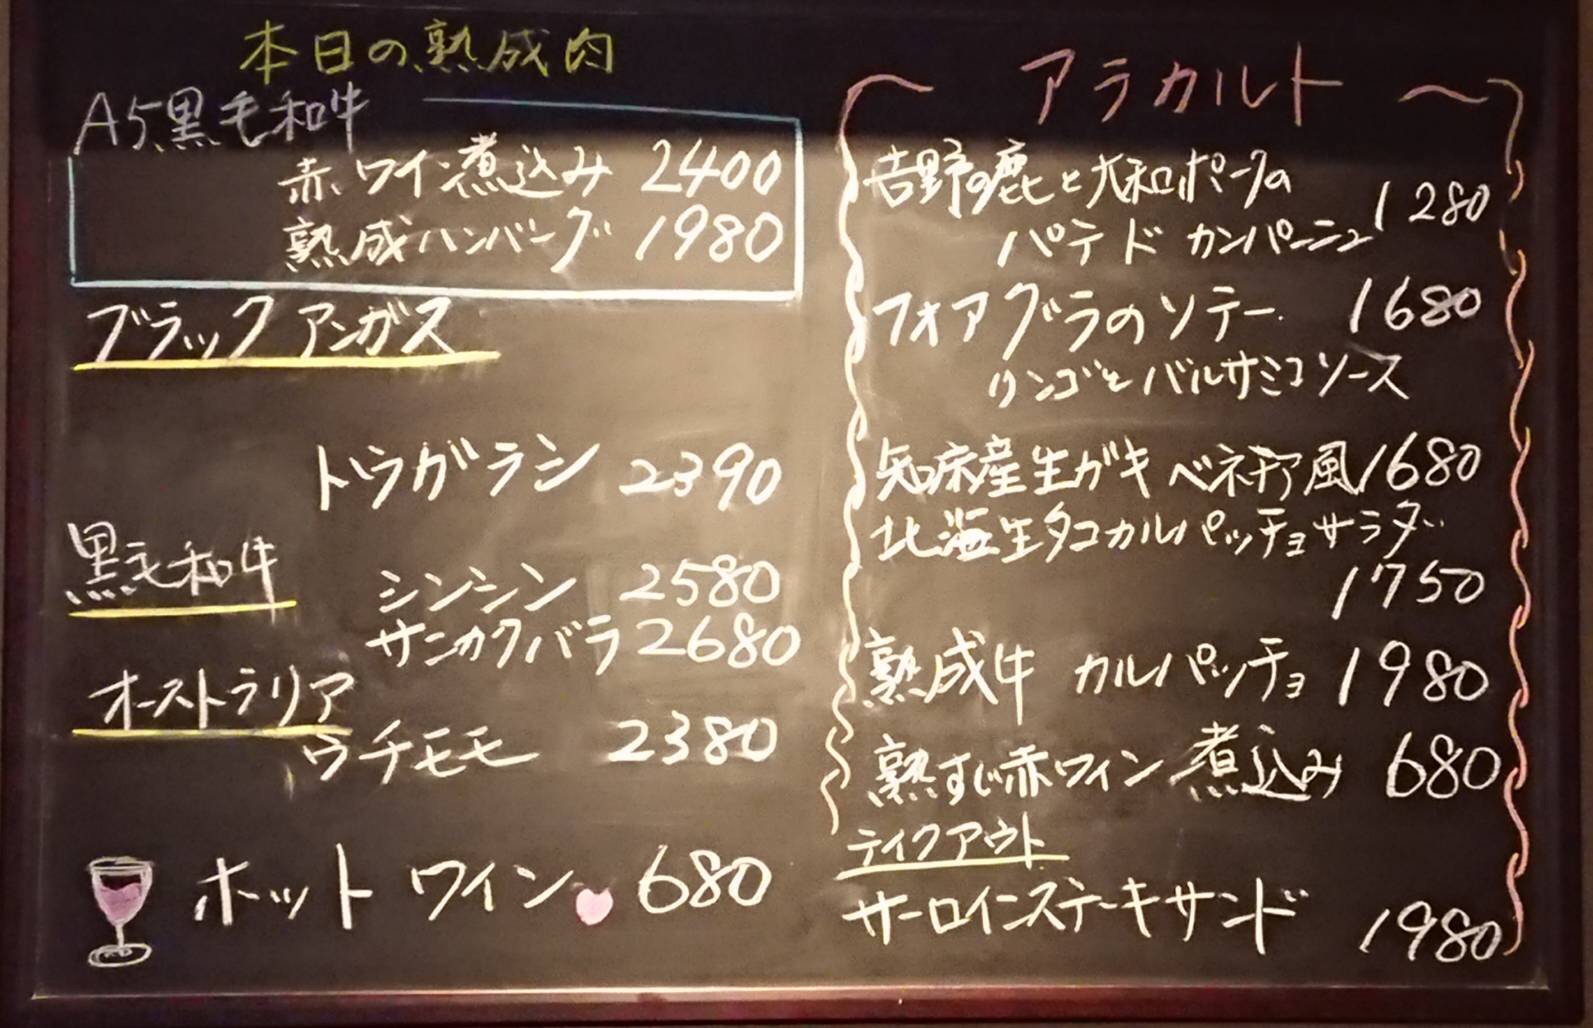 本日の熟成肉
A5黒毛和牛
赤ワイン煮込み 2400
熟成ハンバーグ 1980
ブラックアンガス
トウガラシ 2390
黒毛和牛
シンシン 2580
サンカクバラ 2680
オーストラリア
ウチモモ 2380
ホットワイン 680
アラカルト
吉野の鹿と大和ポークの
パテ ド カンパーニュ 1280
フォアグラのソテー 1680
リンゴとバルサミコソース
知床産生ガキ ベネチア風 1680
北海生タコカルパッチョサラダ
1750
熟成牛 カルパッチョ 1980
熟すじ赤ワイン煮込み 680
テイクアウト
サーロインステーキサンド
1980